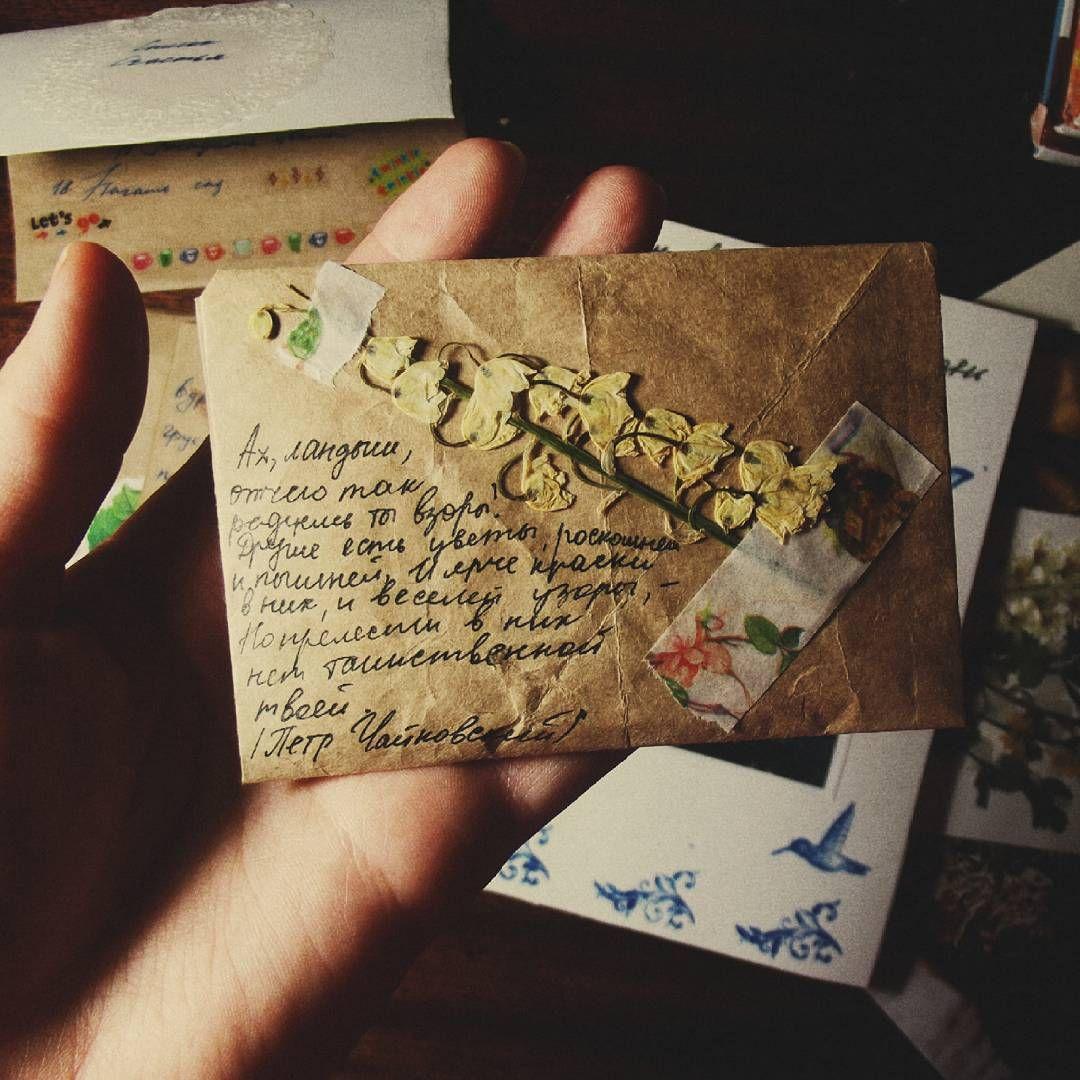 Список
счастья
18 сад
Let's go
Ах, ландыш,
отчего так
радуешь ты взоры!
Другие есть цветы, роскошней
и пышней, И ярче краски
в них, и веселей узоры, –
Но прелести в них
нет таинственной
твоей.
(Петр Чайковский)